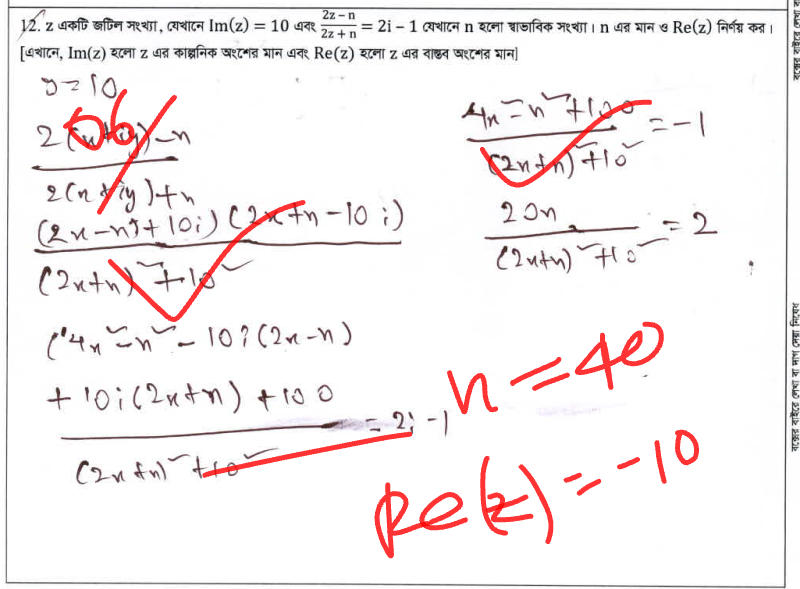 12. z একটি জটিল সংখ্যা, যেখানে Im(z) = 10 এবং (2z − n)/(2z + n) = 2i − 1 যেখানে n হলো স্বাভাবিক সংখ্যা। n এর মান ও Re(z) নির্ণয় কর।
[এখানে, Im(z) হলো z এর কাল্পনিক অংশের মান এবং Re(z) হলো z এর বাস্তব অংশের মান]
y = 10
06
2(x+iy) − n
2(x+iy) + n
(2x − n + 10i) (2x + n − 10i)
(2x+n)² + 10²
(4x² − n² − 10i(2x − n)
+ 10i(2x + n) + 100
= 2i − 1
(2x + n)² + 10²
4x² − n² + 100
= −1
(2x+n)² + 10²
20n
= 2
(2x+n)² + 10²
n = 40
Re(z) = −10
বক্সের বাইরে লেখা বা দাগ দেয়া নিষেধ